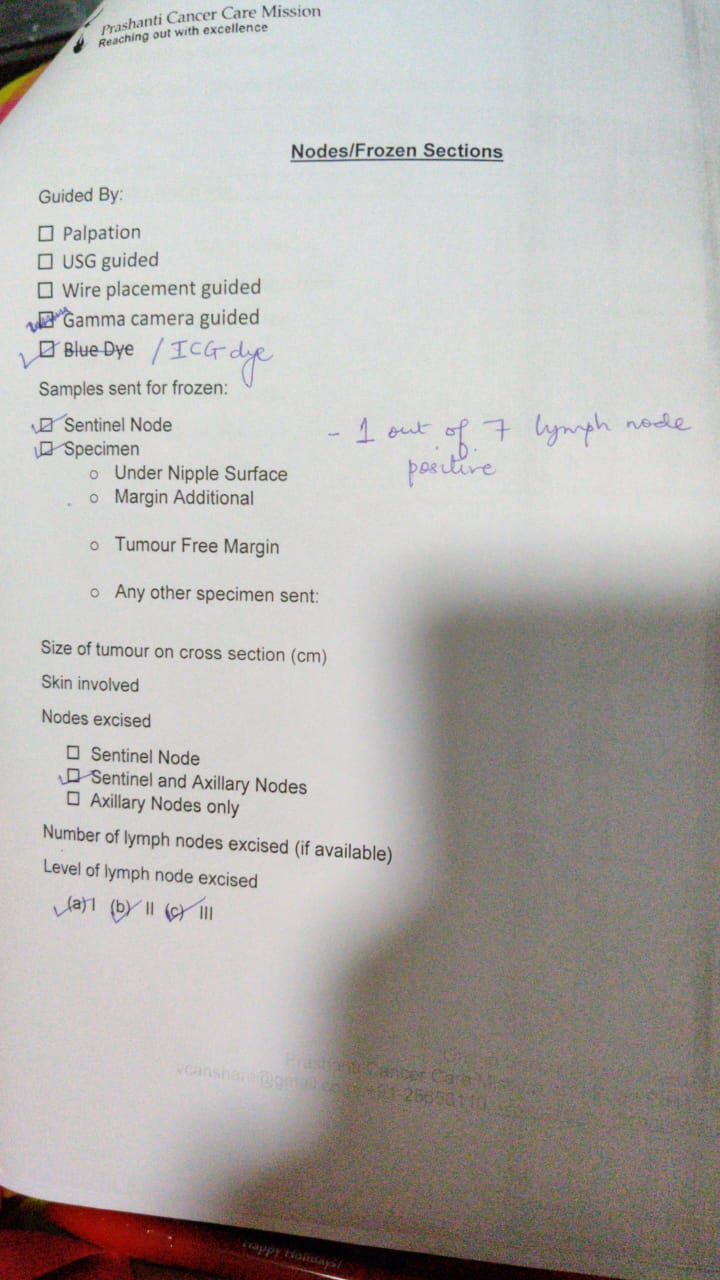 Prashanti Cancer Care Mission
Reaching out with excellence
Nodes/Frozen Sections
Guided By:
☐ Palpation
☐ USG guided
☐ Wire placement guided
☑ Gamma camera guided
☑ Blue Dye / ICG dye
Samples sent for frozen:
☑ Sentinel Node - 1 out of 7 lymph node
☑ Specimen positive
o Under Nipple Surface
o Margin Additional
o Tumour Free Margin
o Any other specimen sent:
Size of tumour on cross section (cm)
Skin involved
Nodes excised
☐ Sentinel Node
☑ Sentinel and Axillary Nodes
☐ Axillary Nodes only
Number of lymph nodes excised (if available)
Level of lymph node excised
(a) I (b) II (c) III
Prashanti Cancer Care
Happy Holidays!